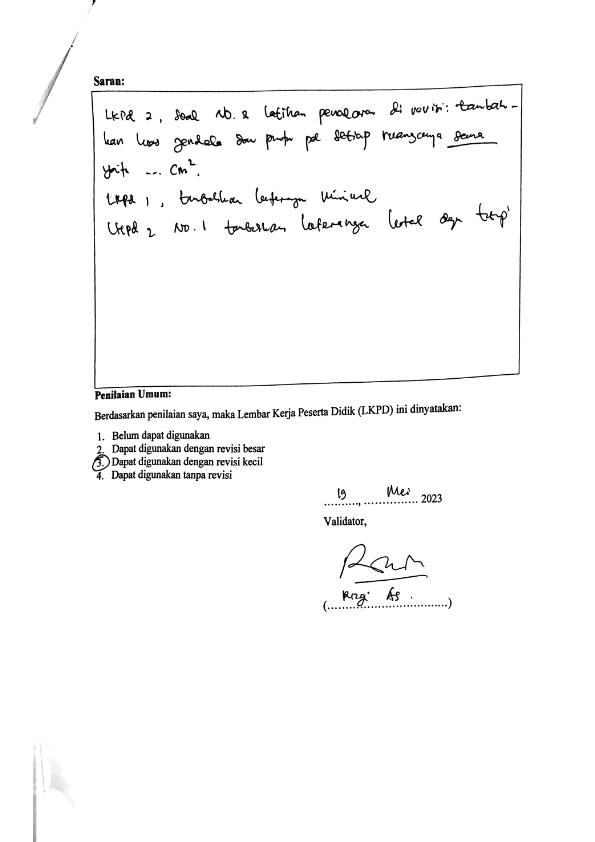 Saran:
LKPD 2, Soal No. 2 latihan penalaran di revisi: tambah-
kan luas jendela dan pintu pd setiap ruangannya sama
yaitu ... cm².
LKPD 1, tambahkan keterangan minimal
LKPD 2 No. 1 tambahkan keterangan kotal dgn tutup
Penilaian Umum:
Berdasarkan penilaian saya, maka Lembar Kerja Peserta Didik (LKPD) ini dinyatakan:
1. Belum dapat digunakan
2. Dapat digunakan dengan revisi besar
3. Dapat digunakan dengan revisi kecil
4. Dapat digunakan tanpa revisi
19 Mei 2023
Validator,
Rizqi As.